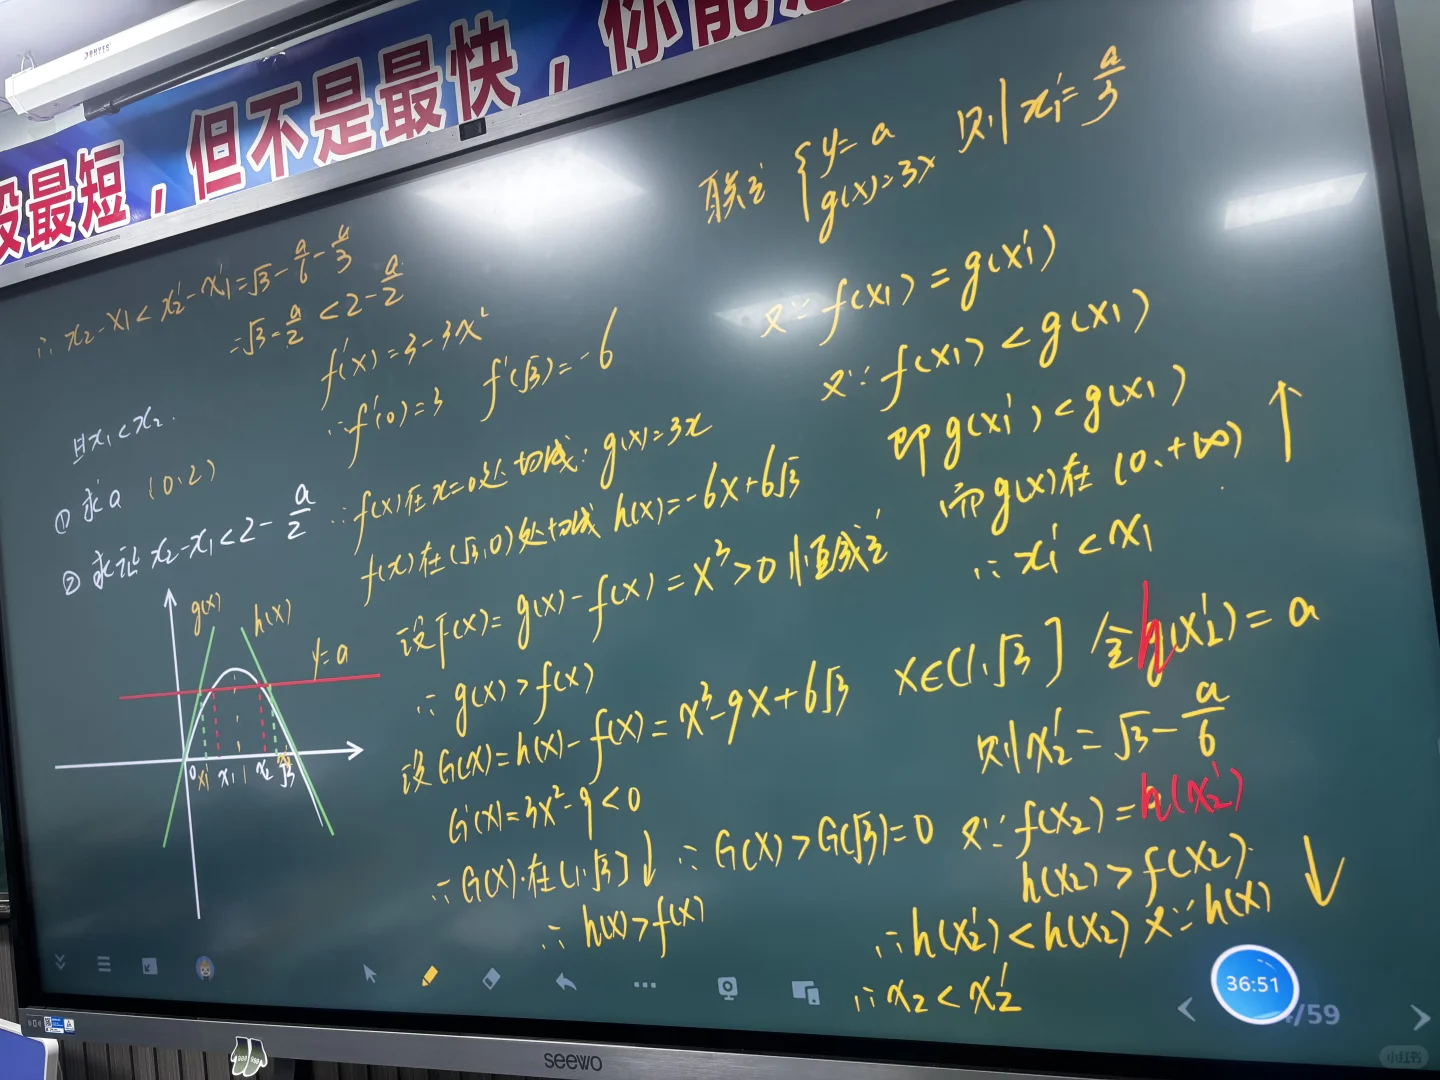 设最短，但不是最快，你能
联立 { y=a
g(x)=3x 则 x₁'=a/3
∴ x₂-x₁<x₂'-x₁'=√3-a/6-a/3
=√3-a/2<2-a/2
f'(x)=3-3x²
∴f'(0)=3 f'(√3)=-6
且x₁<x₂.
① 求a (0.2)
② 求证 x₂-x₁<2-a/2
∵f(x)在x=0处切线:g(x)=3x
f(x)在(√3,0)处切线 h(x)=-6x+6√3
设F(x)=g(x)-f(x)=x³>0 恒成立
∴g(x)>f(x)
设G(x)=h(x)-f(x)=x³-9x+6√3 x∈(1.√3]
G'(x)=3x²-9<0
∴G(x)在(1.√3]↓ ∴G(x)>G(√3)=0
∴h(x)>f(x)
g(x)
h(x)
y=a
0 x₁' x₁ 1 x₂ x₂' √3
又∵f(x₁)=g(x₁')
又∵f(x₁)<g(x₁)
即g(x₁')<g(x₁)
而g(x)在(0.+∞)↑
∴x₁'<x₁
令h(x₂')=a
则x₂'=√3-a/6
又∵f(x₂)=h(x₂')
h(x₂)>f(x₂).
∴h(x₂')<h(x₂) 又∵h(x)↓
∴x₂<x₂'
36:51
/59
seewo
小红书